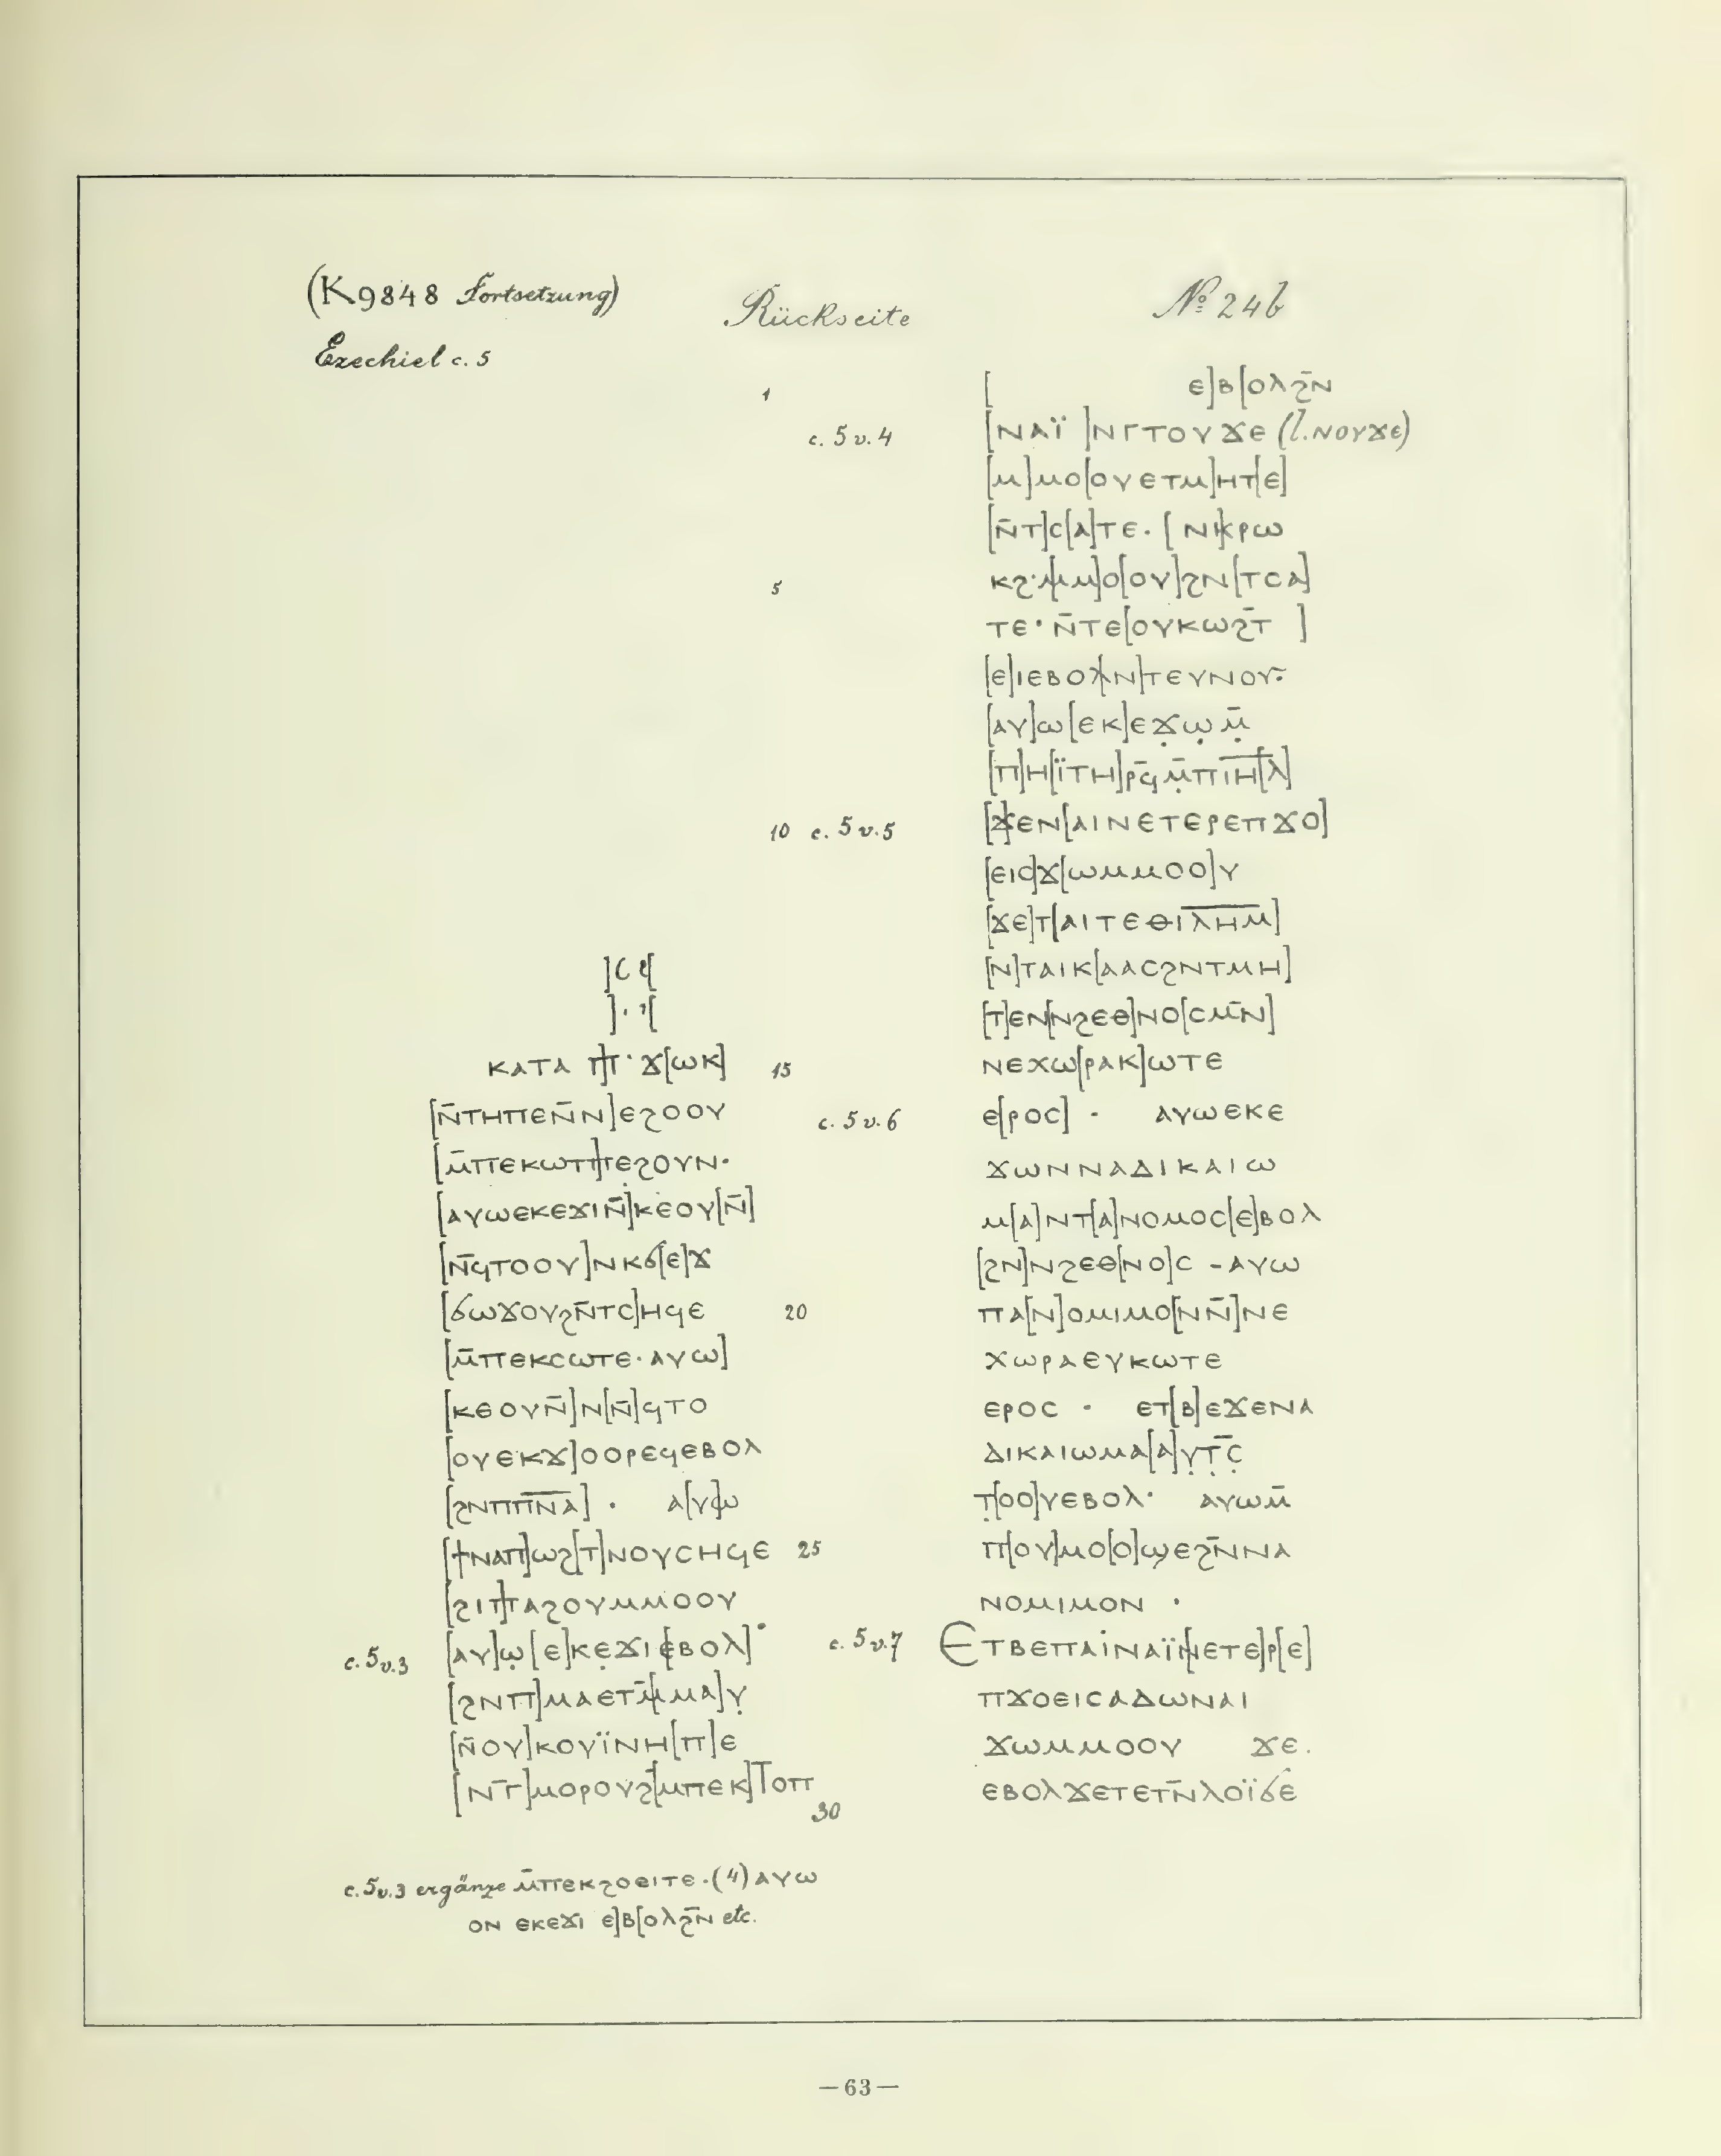 (K9848 Fortsetzung)
Rückseite
№ 24b
Ezechiel c. 5
]ⲥ ϥ[
] · ⲓ[
ⲕⲁⲧⲁ ⲡ]ⲧ· ϫ[ⲱⲕ]
[ⲛ̄ⲧⲏⲡⲉⲛ̄ⲛ]ⲉϩⲟⲟⲩ
[ⲙ̄ⲡⲉⲕⲱⲧⲡ]ⲉϩⲟⲩⲛ·
[ⲁⲩⲱⲉⲕⲉϫⲓⲛ̄]ⲕⲉⲟⲩ[ⲛ̄]
[ⲛ̄ϥⲧⲟⲟⲩ]ⲛⲕϭ[ⲉ]ϫ
[ϭⲱϫⲟⲩϩⲛ̄ⲧⲥ]ⲏϥⲉ
[ⲙ̄ⲡⲉⲕⲥⲱⲧⲉ·ⲁⲩⲱ]
[ⲕⲉⲟⲩⲛ̄]ⲛ[ⲛ̄]ϥⲧⲟ
[ⲟⲩⲉⲕϫ]ⲟⲟⲣⲉϥⲉⲃⲟⲗ
[ϩⲛⲡⲡ̅ⲛ̅ⲁ̅] · ⲁ[ⲩ]ⲱ
[ϯⲛⲁⲡ]ⲱϩ[ⲧ]ⲛⲟⲩⲥⲏϥⲉ
[ϩⲓⲡ]ⲡⲁϩⲟⲩⲙⲙⲟⲟⲩ
c. 5 v. 3 [ⲁⲩ]ⲱ̣[ⲉ]ⲕⲉ̣ϫⲓ[ⲉⲃⲟⲗ]·
[ϩⲛⲡ]ⲙⲁⲉⲧⲙ̄[ⲙⲁ]ⲩ̣
[ⲛ̄ⲟⲩ]ⲕⲟⲩⲓ̈ⲛⲏ[ⲡ]ⲉ
[ⲛⲅ̄]ⲙⲟⲣⲟⲩϩ[ⲙⲡⲉⲕ]ⲧⲟⲡ
1 [ ⲉ]ⲃ[ⲟⲗϩⲛ̄
c. 5 v. 4 [ⲛⲁⲓ̈ ]ⲛⲅⲧⲟⲩϫⲉ (l. ⲛⲟⲩϫⲉ)
[ⲙ]ⲙⲟ[ⲟⲩⲉⲧⲙ]ⲏⲧ[ⲉ]
[ⲛ̄ⲧ]ⲥ[ⲁ]ⲧⲉ. [ ⲛⲅ]ⲣⲱ
5 ⲕϩ·[ⲙⲙ]ⲟ[ⲟⲩ]ϩⲛ[ⲧⲥⲁ]
ⲧⲉ·ⲛ̄ⲧⲉ[ⲟⲩⲕⲱϩ̄ⲧ ]
[ⲉ]ⲓⲉⲃⲟⲗ[ⲛ]ⲧⲉⲩⲛⲟⲩ·
[ⲁⲩ]ⲱ[ⲉⲕ]ⲉϫ̣ⲱ̣ⲙ̣̄
[ⲡ]ⲏ[ⲓ̈ⲧⲏ]ⲣϥ̄ⲙ̣̄ⲡⲓ̅ⲏ̅[ⲗ̅]
10 c. 5 v. 5 [ϫ]ⲉⲛ[ⲁⲓⲛⲉⲧⲉⲣⲉⲡϫⲟ]
[ⲉⲓⲥ]ϫ[ⲱⲙⲙⲟⲟ]ⲩ
[ϫⲉ]ⲧ[ⲁⲓⲧⲉⲑⲓ̅ⲗ̅ⲏ̅ⲙ̅]
[ⲛ]ⲧⲁⲓⲕ[ⲁⲁⲥϩⲛⲧⲙⲏ]
[ⲧ]ⲉⲛ[ⲛϩⲉⲑ]ⲛⲟ[ⲥⲙⲛ̄]
15 ⲛⲉⲭⲱ[ⲣⲁⲕ]ⲱⲧⲉ
c. 5 v. 6 ⲉ[ⲣⲟⲥ] · ⲁⲩⲱⲉⲕⲉ
ϫⲱⲛⲛⲁⲇⲓⲕⲁⲓⲱ
ⲙ[ⲁ]ⲛⲧ[ⲁ]ⲛⲟⲙⲟⲥ[ⲉ]ⲃⲟⲗ
[ϩⲛ]ⲛϩⲉⲑ[ⲛⲟ]ⲥ - ⲁⲩⲱ
20 ⲡⲁ[ⲛ]ⲟⲙⲓⲙⲟ[ⲛⲛ̄]ⲛⲉ
ⲭⲱⲣⲁⲉⲩⲕⲱⲧⲉ
ⲉⲣⲟⲥ · ⲉⲧ[ⲃ]ⲉϫⲉⲛⲁ
ⲇⲓⲕⲁⲓⲱⲙⲁ[ⲁ]ⲩ̣ⲧ̣̄ⲥ̣̄
ⲧ̣[ⲟⲟ]ⲩⲉⲃⲟⲗ· ⲁⲩⲱⲙ̄
25 ⲡ[ⲟⲩ]ⲙⲟ[ⲟ]ϣⲉϩⲛ̄ⲛⲁ
ⲛⲟⲙⲓⲙⲟⲛ ·
c. 5 v. 7 ⲉⲧⲃⲉⲡⲁⲓⲛⲁⲓ̈[ⲛⲉⲧⲉ]ⲣ[ⲉ]
ⲡϫⲟⲉⲓⲥⲁⲇⲱⲛⲁⲓ
ϫⲱⲙⲙⲟⲟⲩ ϫⲉ.
30 ⲉⲃⲟⲗϫⲉⲧⲉⲧⲛ̄ⲗⲟⲓ̈ϭⲉ
c. 5 v. 3 ergänze ⲙ̄ⲡⲉⲕϩⲟⲉⲓⲧⲉ·(4) ⲁⲩⲱ
ⲟⲛ ⲉⲕⲉϫⲓ ⲉ]ⲃ[ⲟⲗϩⲛ̄ etc.
—63—